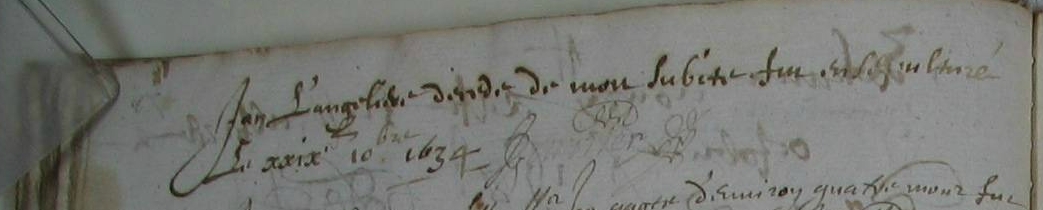 Jan L'angeliere décéde de mort subite fut ensepulturé
Le xxixe 10bre 1634
aagée d'environ quatre mour fut